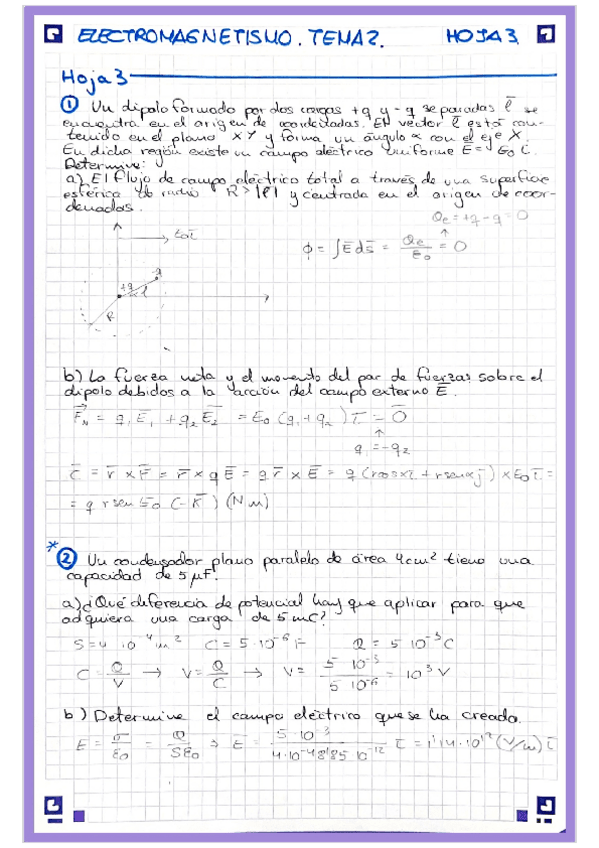 ELECTROMAGNETISMO. TEMA 2. HOJA 3
Hoja 3
① Un dipolo formado por dos cargas +q y -q separadas l̄ se
encuentra en el origen de coordenadas. El vector l̄ está con-
tenido en el plano XY y forma un ángulo α con el eje X.
En dicha región existe un campo eléctrico uniforme Ē = E₀ ī.
Determine:
a) El flujo de campo eléctrico total a través de una superficie
esférica de radio R > |l| y centrada en el origen de coor-
denadas.
Qe = +q - q = 0
↑
E₀ī
ϕ = ∫ Ē ds̄ = Qe/E₀ = 0
-q
+q
l
R
b) La fuerza neta y el momento del par de fuerzas sobre el
dipolo debidos a la acción del campo externo Ē.
F̄N = q₁ Ē₁ + q₂ Ē₂ = E₀ (q₁ + q₂) ī = 0̄
↑
q₁ = -q₂
C̄ = r̄ × F̄ = r̄ × q Ē = q r̄ × Ē = q (r cosα ī + r senα j̄) × E₀ ī =
= q r sen E₀ (-k̄) (N m)
* ② Un condensador plano paralelo de área 4cm² tiene una
capacidad de 5 μF.
a) ¿Qué diferencia de potencial hay que aplicar para que
adquiera una carga de 5 mC?
S = 4 · 10⁻⁴ m² C = 5 · 10⁻⁶ F Q = 5 10⁻³ C
C = Q/V → V = Q/C → V = 5 10⁻³ / 5 10⁻⁶ = 10³ V
b) Determine el campo eléctrico que se ha creado.
E = σ/ε₀ = Q/Sε₀ → Ē = 5 · 10⁻³ / 4·10⁻⁴ 8'85 10⁻¹² ī = 1'14 · 10¹² (V/m) ī